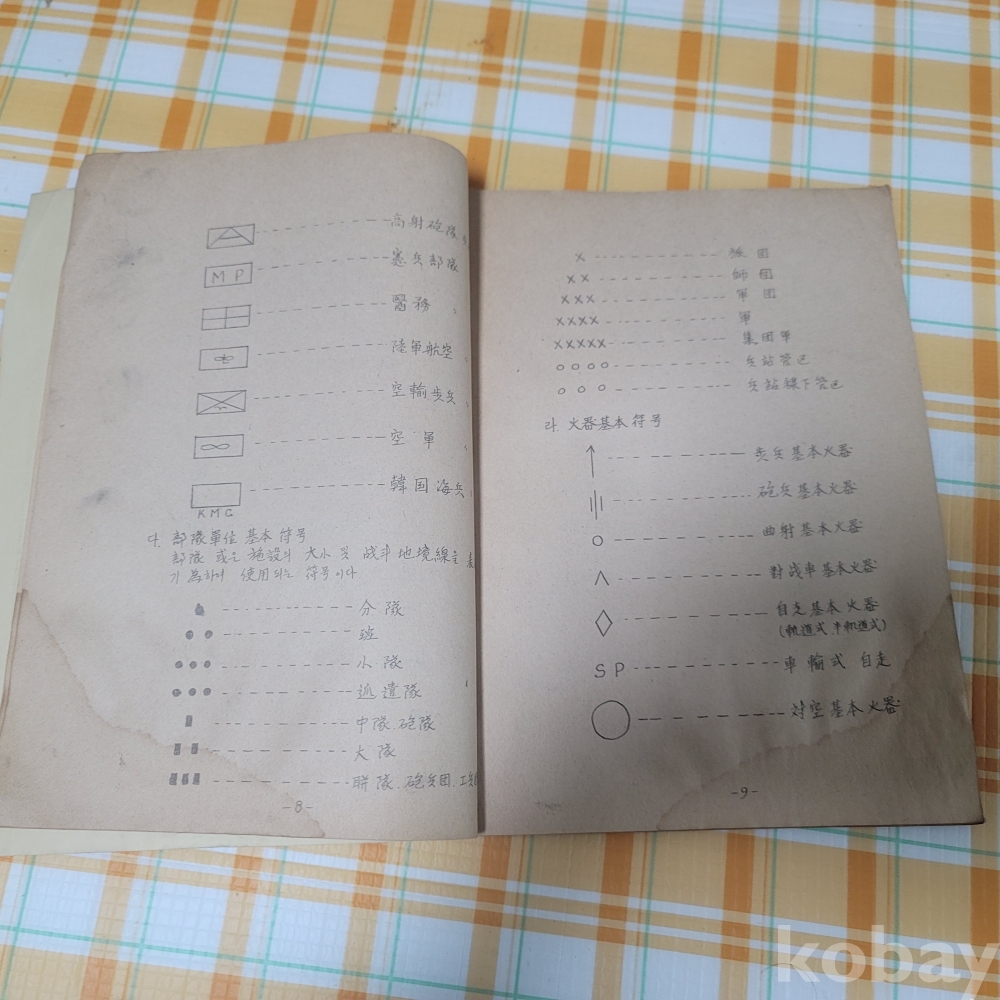 高射砲隊
MP 憲兵部隊
醫務
陸軍航空
空輸步兵
空軍
KMC 韓国海兵
部隊單位 基本 符号
部隊 或은 施設의 大小 및 战斗 地境線을 表
기 為하여 使用되는 符号이다
分隊
班
小隊
派遣隊
中隊.砲隊
大隊
聯隊.砲兵団.工兵
-8-
X 旅団
XX 師団
XXX 軍团
XXXX 軍
XXXXX 集团軍
兵站管区
兵站線下管区
라. 火器基本符号
步兵基本火器
砲兵基本火器
曲射基本火器
對战車基本火器
自走基本火器
(軌道式.半軌道式)
SP 車輪式 自走
対空基本火器
-9-
kobay